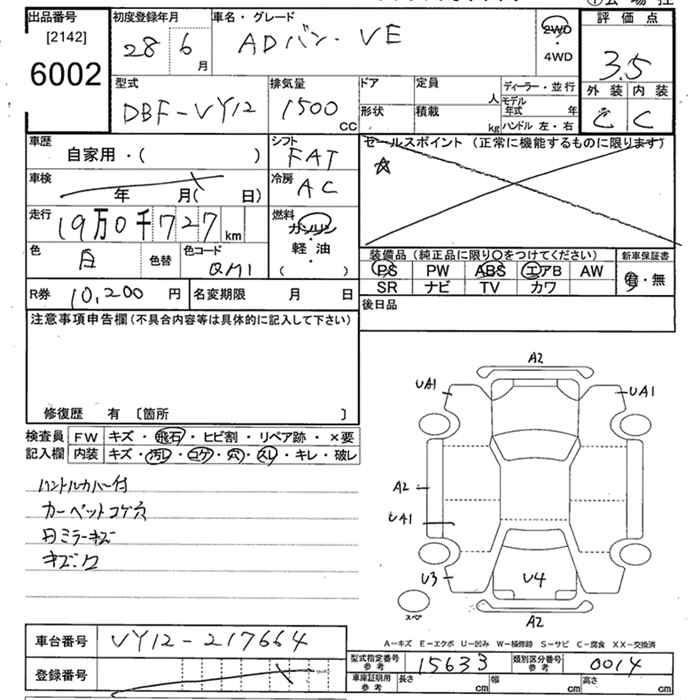 出品番号
[2142]
6002
初度登録年月
28 6 月
車名・グレード
ADバン・VE
2WD
・
4WD
評価点
3.5
外装 内装
C C
型式
DBF-VY12
排気量
1500 CC
ドア
定員 人
形状
積載 kg
ディーラー・並行
モデル年式 年
ハンドル 左・右
車歴
自家用・( )
シフト
FAT
セールスポイント (正常に機能するものに限ります)
車検
年 月( 日)
冷房
AC
走行
19万0千727 km
燃料
ガソリン
・
軽油
( )
色
白
色替
色コード
QM1
装備品 (純正品に限り○をつけてください)
PS PW ABS エアB AW
SR ナビ TV カワ
新車保証書
有・無
R券 10,200 円
名変期限 月 日
後日品
注意事項申告欄 (不具合内容等は具体的に記入して下さい)
修復歴 有 〔箇所 〕
検査員
記入欄
FW キズ・飛石・ヒビ割・リペア跡・×要
内装 キズ・汚レ・コゲ・穴・スレ・キレ・破レ
ハンドルカバー付
カーペットコゲ穴
A2
UA1
UA1
A2
UA1
U3
U4
スペア
A2
A-キズ E-エクボ U-凹み W-補修跡 S-サビ C-腐食 XX-交換済
車台番号 VY12-217664
登録番号
型式指定番号 参考 15633
類別区分番号 参考 0014
車庫証明用 参考
長さ cm
幅 cm
高さ cm